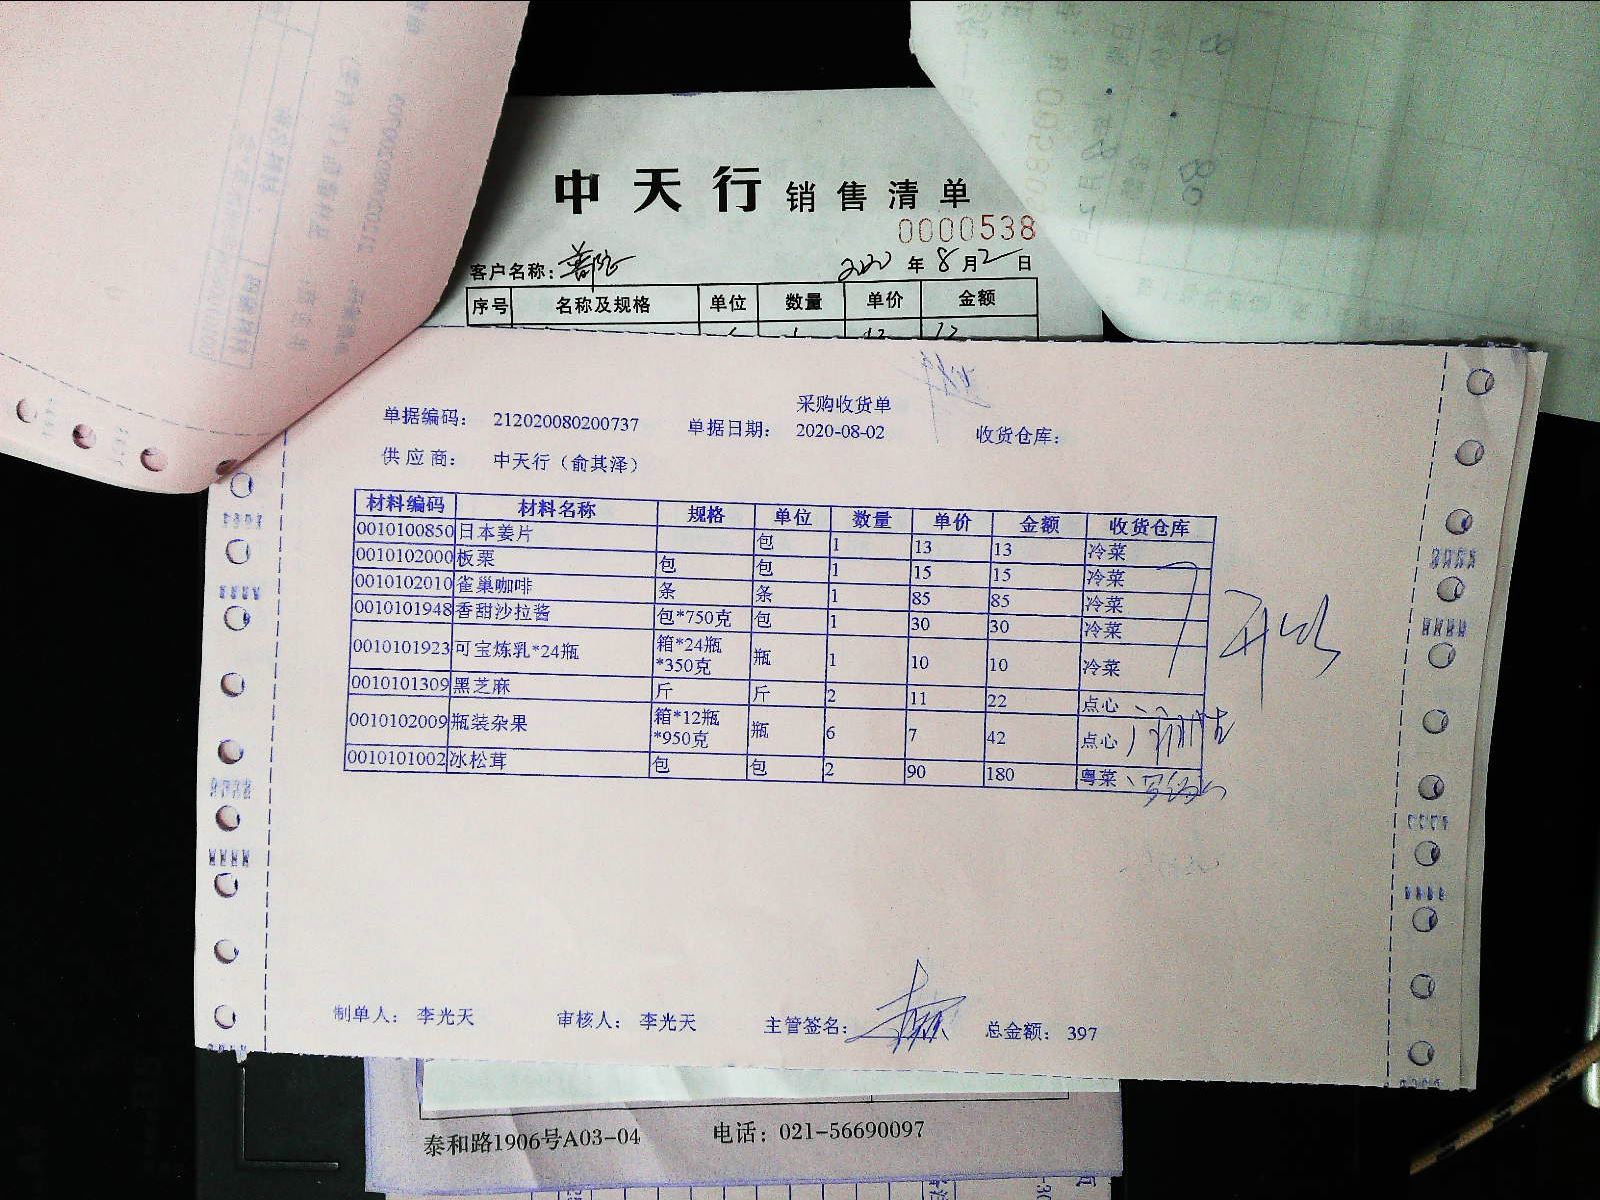 中天行 销售清单
0000538
客户名称: 普陀 2020 年 8 月 2 日
序号 名称及规格 单位 数量 单价 金额
采购收货单
单据编码: 212020080200737 单据日期: 2020-08-02 收货仓库:
供应商: 中天行（俞其泽）
材料编码 材料名称 规格 单位 数量 单价 金额 收货仓库
0010100850 日本姜片 包 1 13 13 冷菜
0010102000 板栗 包 包 1 15 15 冷菜
0010102010 雀巢咖啡 条 条 1 85 85 冷菜
0010101948 香甜沙拉酱 包*750克 包 1 30 30 冷菜
0010101923 可宝炼乳*24瓶 箱*24瓶*350克 瓶 1 10 10 冷菜
0010101309 黑芝麻 斤 斤 2 11 22 点心
0010102009 瓶装杂果 箱*12瓶*950克 瓶 6 7 42 点心
0010101002 冰松茸 包 包 2 90 180 粤菜
制单人: 李光天 审核人: 李光天 主管签名: 总金额: 397
泰和路1906号A03-04 电话: 021-56690097